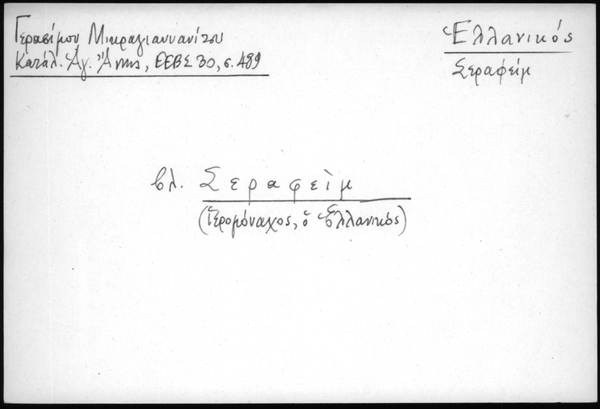 Γερασίμου Μικραγιαννανίτου
Κατάλ. Ἁγ. Ἄννης, ΕΕΒΣ 30, σ. 489
Ἑλλανικός
Σεραφείμ
βλ. Σεραφεὶμ
(Ἱερομόναχος, ὁ Ἑλλανικός)